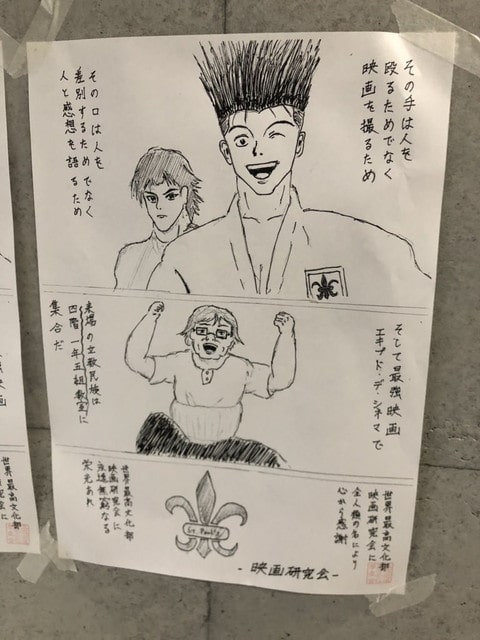 その手は人を
殴るためでなく
映画を撮るため
その口は人を
差別するためでなく
人と感想を語るため
そして最強映画
エキプド・デ・シネマで
来場の立教民族は
四階一年五組教室に
集合だ
世界最高文化部
映画研究会に
全人類の名により
心から感謝
St. Paul's
世界最高文化部
映画研究会に
永遠無窮なる
栄光あれ
- 映画研究会 -
映画
世界最高文化部
映画研究会に